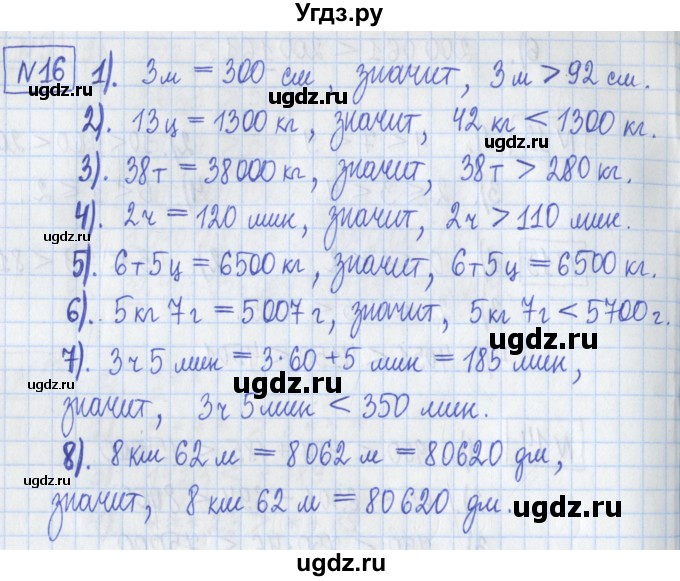 Угдз.ру
№16 1). 3м = 300 см, значит, 3м > 92 см.
ugdz.ru ugdz.ru
2). 13ц = 1300 кг, значит, 42 кг < 1300 кг.
ugdz.ru
3). 38т = 38000 кг, значит, 38т > 280 кг.
ugdz.ru
4). 2ч = 120 мин, значит, 2ч > 110 мин.
ugdz.ru ugdz.ru
5). 6т5ц = 6500 кг, значит, 6т5ц = 6500 кг.
ugdz.ru
6). 5кг 7г = 5007 г, значит, 5кг 7г < 5700г.
ugdz.ru
7). 3ч 5 мин = 3·60+5 мин = 185 мин,
ugdz.ru ugdz.ru
значит, 3ч 5мин < 350 мин.
ugdz.ru
8). 8км 62 м = 8062 м = 80620 дм,
ugdz.ru
значит, 8 км 62 м = 80620 дм.
ugdz.ru ugdz.ru
ugdz.ru